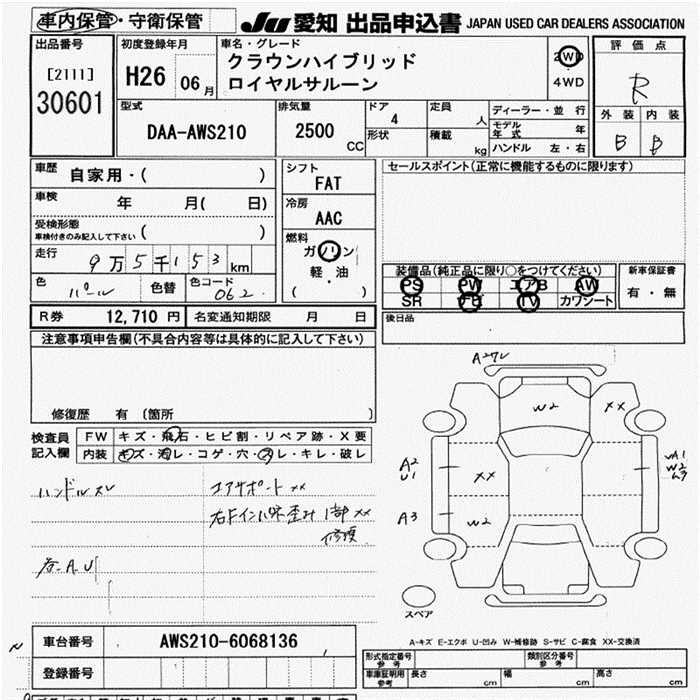 車内保管・守衛保管
JU 愛知 出品申込書 JAPAN USED CAR DEALERS ASSOCIATION
出品番号
[2111]
30601
初度登録年月
H26 06月
車名・グレード
クラウンハイブリッド
ロイヤルサルーン
2WD
4WD
評価点
R
外装 内装
B B
型式
DAA-AWS210
排気量
2500 CC
ドア
4
形状
定員
人
積載
kg
ディーラー・並行
モデル年式 年
ハンドル 左・右
車歴
自家用・( )
車検 年 月( 日)
受検形態
車検付きのみ記入して下さい ( )
走行 9万5千153km
色 パール 色替 色コード 062
シフト
FAT
冷房
AAC
燃料
ガソリン
軽・油
( )
セールスポイント(正常に機能するものに限ります)
装備品(純正品に限り○をつけてください)
PS PW エアB AW
SR ナビ TV カワシート
新車保証書
有・無
R券 12,710 円 名変通知期限 月 日
後日品
注意事項申告欄(不具合内容等は具体的に記入して下さい)
修復歴 有 〔箇所 〕
検査員記入欄
FW キズ・飛石・ヒビ割・リペア跡・X要
内装 キズ・汚レ・コゲ・穴・スレ・キレ・破レ
ハンドルスレ
コアサポート xx
右Fインパネ歪み 1部 xx
修復
各A.U
Aスレ
W2
XX
A2
U1
XX
A3
W2
W2
スペア
A-キズ E-エクボ U-凹み W-補修跡 S-サビ C-腐食 XX-交換済
車台番号 AWS210-6068136
登録番号
型式指定番号
参考
類別区分番号
参考
車庫証明用
参考
長さ cm 幅 cm 高さ cm